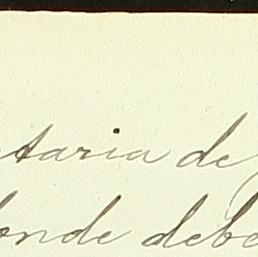 taria de
onde debe